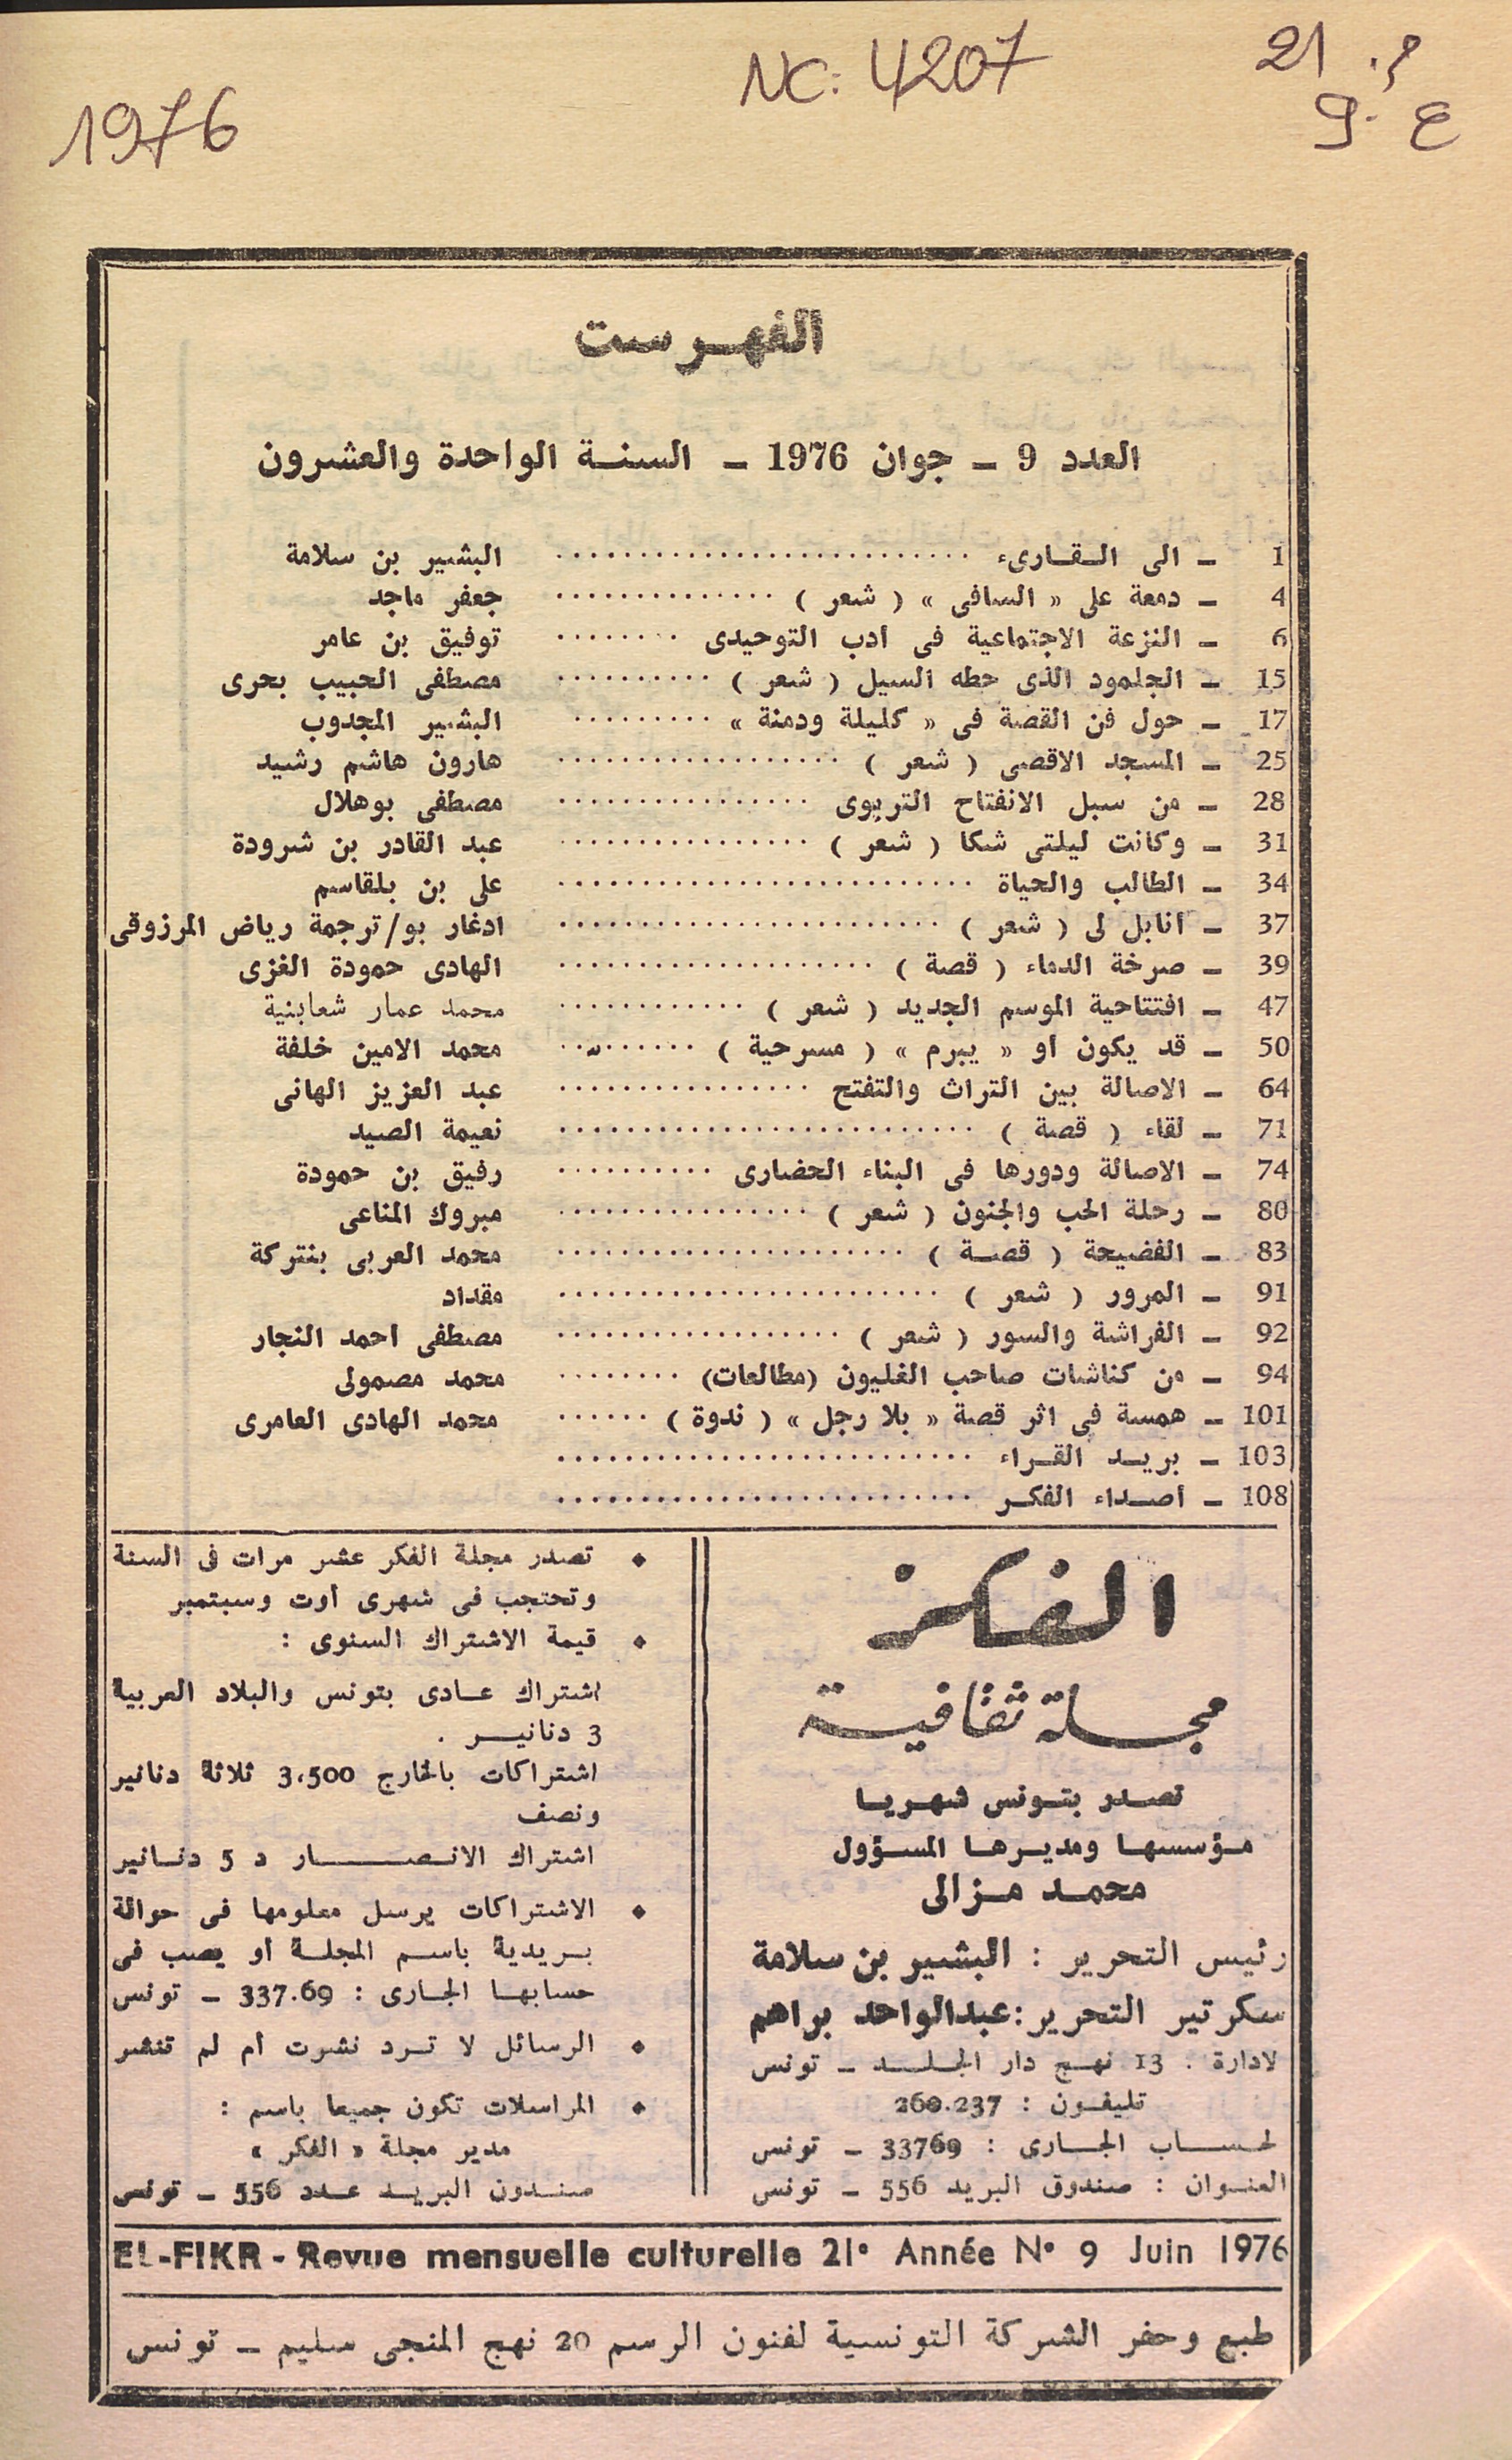 1976
NC: 4207
م. 21
ع. 9
الفهرست
العدد 9 ـ جوان 1976 ـ السنة الواحدة والعشرون
1 ـ الى القارىء .......................... البشير بن سلامة
4 ـ دمعة على « السافى » ( شعر ) .............. جعفر ماجد
6 ـ النزعة الاجتماعية فى أدب التوحيدى ........ توفيق بن عامر
15 ـ الجلمود الذى حطه السيل ( شعر ) .......... مصطفى الحبيب بحرى
17 ـ حول فن القصة فى « كليلة ودمنة » ......... البشير المجدوب
25 ـ المسجد الاقصى ( شعر ) .................. هارون هاشم رشيد
28 ـ من سبل الانفتاح التربوى ................ مصطفى بوهلال
31 ـ وكانت ليلتى شكا ( شعر ) ................ عبد القادر بن شرودة
34 ـ الطالب والحياة .......................... على بن بلقاسم
37 ـ أنابل لى ( شعر ) ........................ ادغار بو/ترجمة رياض المرزوقى
39 ـ صرخة الدماء ( قصة ) .................... الهادى حمودة الغزى
47 ـ افتتاحية الموسم الجديد ( شعر ) ............ محمد عمار شعابنية
50 ـ قد يكون أو « يبرم » ( مسرحية ) ......... محمد الامين خلفة
64 ـ الاصالة بين التراث والتفتح ................ عبد العزيز الهانى
71 ـ لقاء ( قصة ) .......................... نعيمة الصيد
74 ـ الاصالة ودورها فى البناء الحضارى .......... رفيق بن حمودة
80 ـ رحلة الحب والجنون ( شعر ) ................ مبروك المناعى
83 ـ الفضيحة ( قصة ) ...................... محمد العربى بنتركة
91 ـ المرور ( شعر ) ........................ مقداد
92 ـ الفراشة والسور ( شعر ) .................. مصطفى أحمد النجار
94 ـ من كناشات صاحب الغليون (مطالعات) ........ محمد مصمولى
101 ـ همسة فى اثر قصة « بلا رجل » ( ندوة ) ...... محمد الهادى العامرى
103 ـ بريد القراء ..........................
108 ـ أصداء الفكر ..........................
الفكر
مجلة ثقافية
تصدر بتونس شهريا
مؤسسها ومديرها المسؤول
محمد مزالى
رئيس التحرير : البشير بن سلامة
سكرتير التحرير : عبدالواحد براهم
لادارة : 13 نهج دار الجلد ـ تونس
تليفون : 260.237
لحساب الجارى : 33769 ـ تونس
العنوان : صندوق البريد 556 ـ تونس
♦ تصدر مجلة الفكر عشر مرات فى السنة
وتحتجب فى شهرى أوت وسبتمبر
♦ قيمة الاشتراك السنوى :
اشتراك عادى بتونس والبلاد العربية
3 دنانير .
اشتراكات بالخارج 3،500 ثلاثة دنانير
ونصف
اشتراك الانصار د 5 دنانير
♦ الاشتراكات يرسل معلومها فى حوالة
بريدية باسم المجلة أو يصب فى
حسابها الجارى : 337.69 ـ تونس
♦ الرسائل لا ترد نشرت أم لم تنشر
♦ المراسلات تكون جميعا باسم :
مدير مجلة « الفكر »
صندوق البريد عدد 556 ـ تونس
EL-FIKR - Revue mensuelle culturelle 21° Année N° 9 Juin 1976
طبع وحفر الشركة التونسية لفنون الرسم 20 نهج المنجى سليم ـ تونس